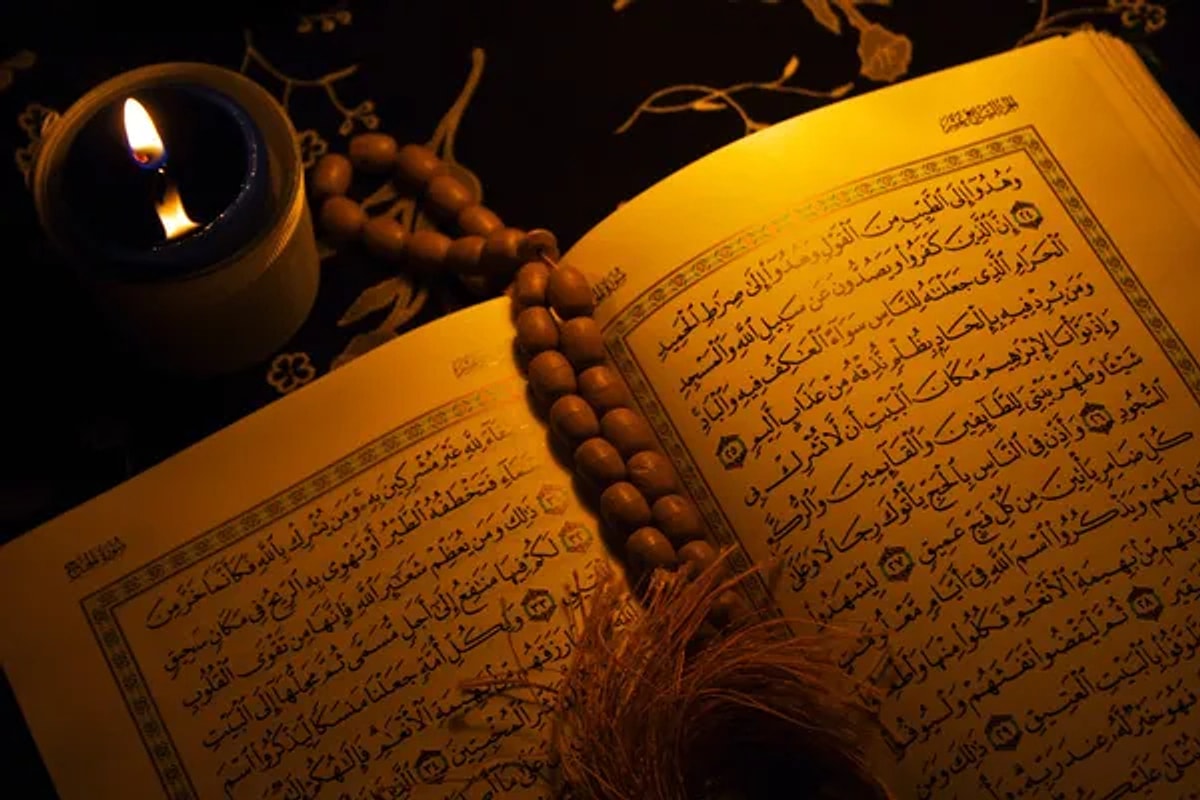 الجزء السابع عشر
وَهُدُوٓا۟ إِلَى ٱلطَّيِّبِ مِنَ ٱلْقَوْلِ وَهُدُوٓا۟ إِلَىٰ صِرَٰطِ ٱلْحَمِيدِ
٢٤ إِنَّ ٱلَّذِينَ كَفَرُوا۟ وَيَصُدُّونَ عَن سَبِيلِ ٱللَّهِ وَٱلْمَسْجِدِ
ٱلْحَرَامِ ٱلَّذِى جَعَلْنَٰهُ لِلنَّاسِ سَوَآءً ٱلْعَٰكِفُ فِيهِ وَٱلْبَادِ
وَمَن يُرِدْ فِيهِ بِإِلْحَادٍۭ بِظُلْمٍ نُّذِقْهُ مِنْ عَذَابٍ أَلِيمٍ ٢٥
وَإِذْ بَوَّأْنَا لِإِبْرَٰهِيمَ مَكَانَ ٱلْبَيْتِ أَن لَّا تُشْرِكْ بِى
شَيْـًٔا وَطَهِّرْ بَيْتِىَ لِلطَّآئِفِينَ وَٱلْقَآئِمِينَ وَٱلرُّكَّعِ
ٱلسُّجُودِ ٢٦ وَأَذِّن فِى ٱلنَّاسِ بِٱلْحَجِّ يَأْتُوكَ رِجَالًا وَعَلَىٰ
كُلِّ ضَامِرٍ يَأْتِينَ مِن كُلِّ فَجٍّ عَمِيقٍ ٢٧ لِّيَشْهَدُوا۟
لَهُمْ وَيَذْكُرُوا۟ ٱسْمَ ٱللَّهِ فِىٓ أَيَّامٍ
مِّنۢ بَهِيمَةِ ٱلْأَنْعَٰمِ فَكُلُوا۟ مِنْهَا
٢٨ ثُمَّ لْيَقْضُوا۟ تَفَثَهُمْ وَلْيُوفُوا۟
بِٱلْبَيْتِ ٱلْعَتِيقِ ٢٩ ذَٰلِكَ وَمَن
فَهُوَ خَيْرٌ لَّهُۥ عِندَ رَبِّهِۦ
يُتْلَىٰ عَلَيْكُمْ
سورة الحج
لِلَّهِ غَيْرَ مُشْرِكِينَ بِهِۦ وَمَن يُشْرِكْ بِٱللَّهِ فَكَأَنَّمَا خَرَّ مِنَ
فَتَخْطَفُهُ ٱلطَّيْرُ أَوْ تَهْوِى بِهِ ٱلرِّيحُ فِى مَكَانٍ سَحِيقٍ
٣١ ذَٰلِكَ وَمَن يُعَظِّمْ شَعَٰٓئِرَ ٱللَّهِ فَإِنَّهَا مِن تَقْوَى ٱلْقُلُوبِ
٣٢ لَكُمْ فِيهَا مَنَٰفِعُ إِلَىٰٓ أَجَلٍ مُّسَمًّى ثُمَّ مَحِلُّهَآ إِلَى ٱلْبَيْتِ
٣٣ وَلِكُلِّ أُمَّةٍ جَعَلْنَا مَنسَكًا لِّيَذْكُرُوا۟ ٱسْمَ
رَزَقَهُم مِّنۢ بَهِيمَةِ ٱلْأَنْعَٰمِ فَإِلَٰهُكُمْ إِلَٰهٌ
ٱلْمُخْبِتِينَ ٣٤ ٱلَّذِينَ